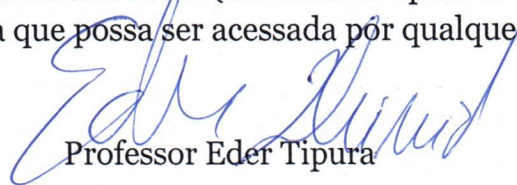 a que possa ser acessada por qualque
Professor Eder Tipura